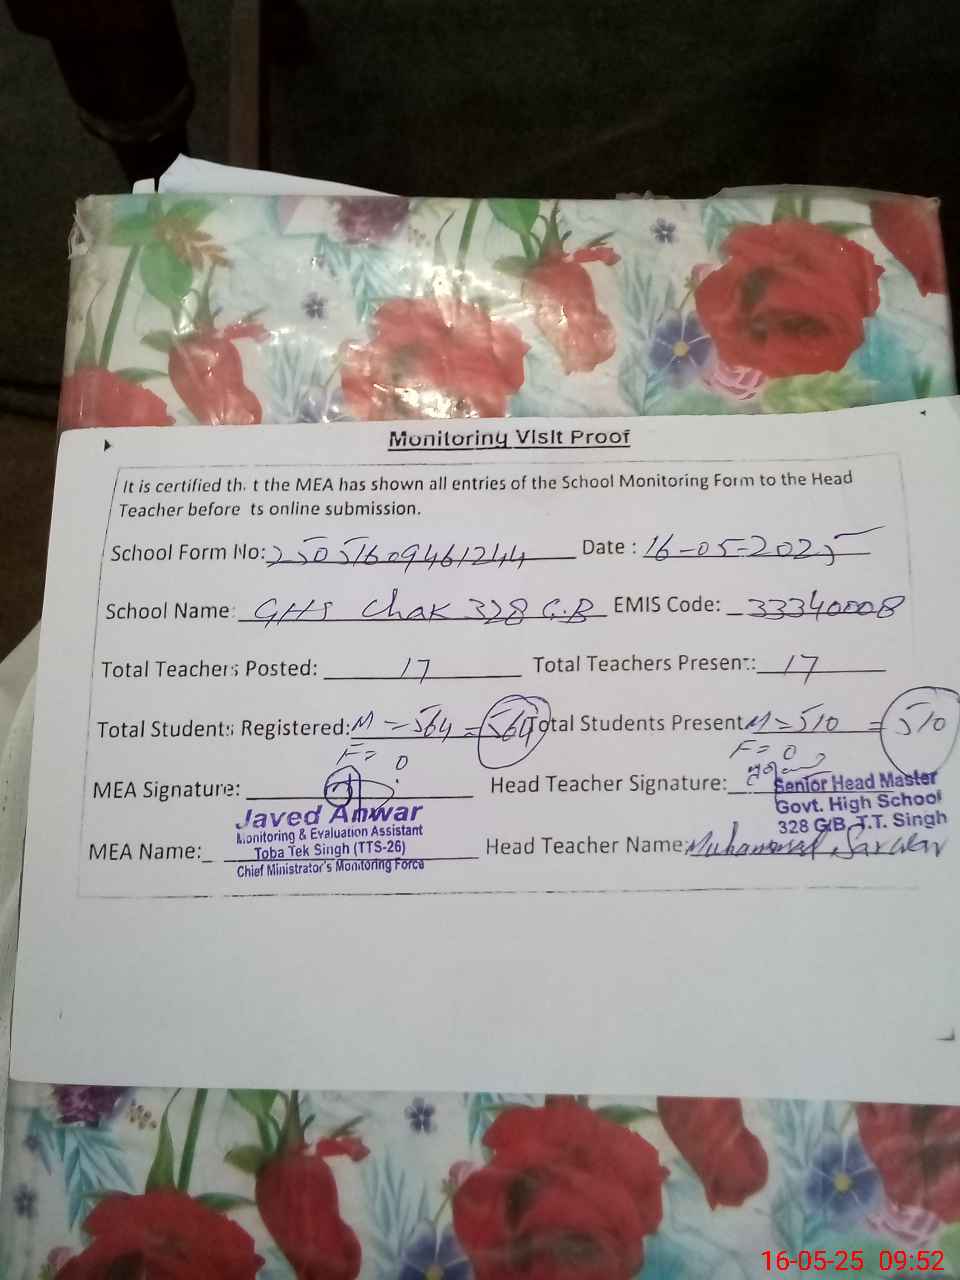 Monitoring Visit Proof
It is certified th t the MEA has shown all entries of the School Monitoring Form to the Head
Teacher before ts online submission.
School Form No: 25051609461244 Date : 16-05-2025
School Name: GHS Chak 328 G.B EMIS Code: 33340008
Total Teachers Posted: 17 Total Teachers Present: 17
Total Students Registered: M = 564 = 564 Total Students Present M = 510 = 510
F = 0 F = 0
MEA Signature: Head Teacher Signature:
Senior Head Master
Govt. High School
328 G/B, T.T. Singh
Javed Anwar
Monitoring & Evaluation Assistant
Toba Tek Singh (TTS-26)
Chief Ministrator's Monitoring Force
MEA Name: Head Teacher Name: Muhammad Sarwar
16-05-25 09:52